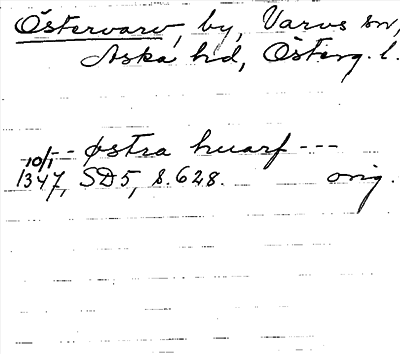 Östervarv, by, Varvs sn,
Aska hd, Österg. l.
10/1 -- østra huarf ---
1347, SD5, s. 628. orig.